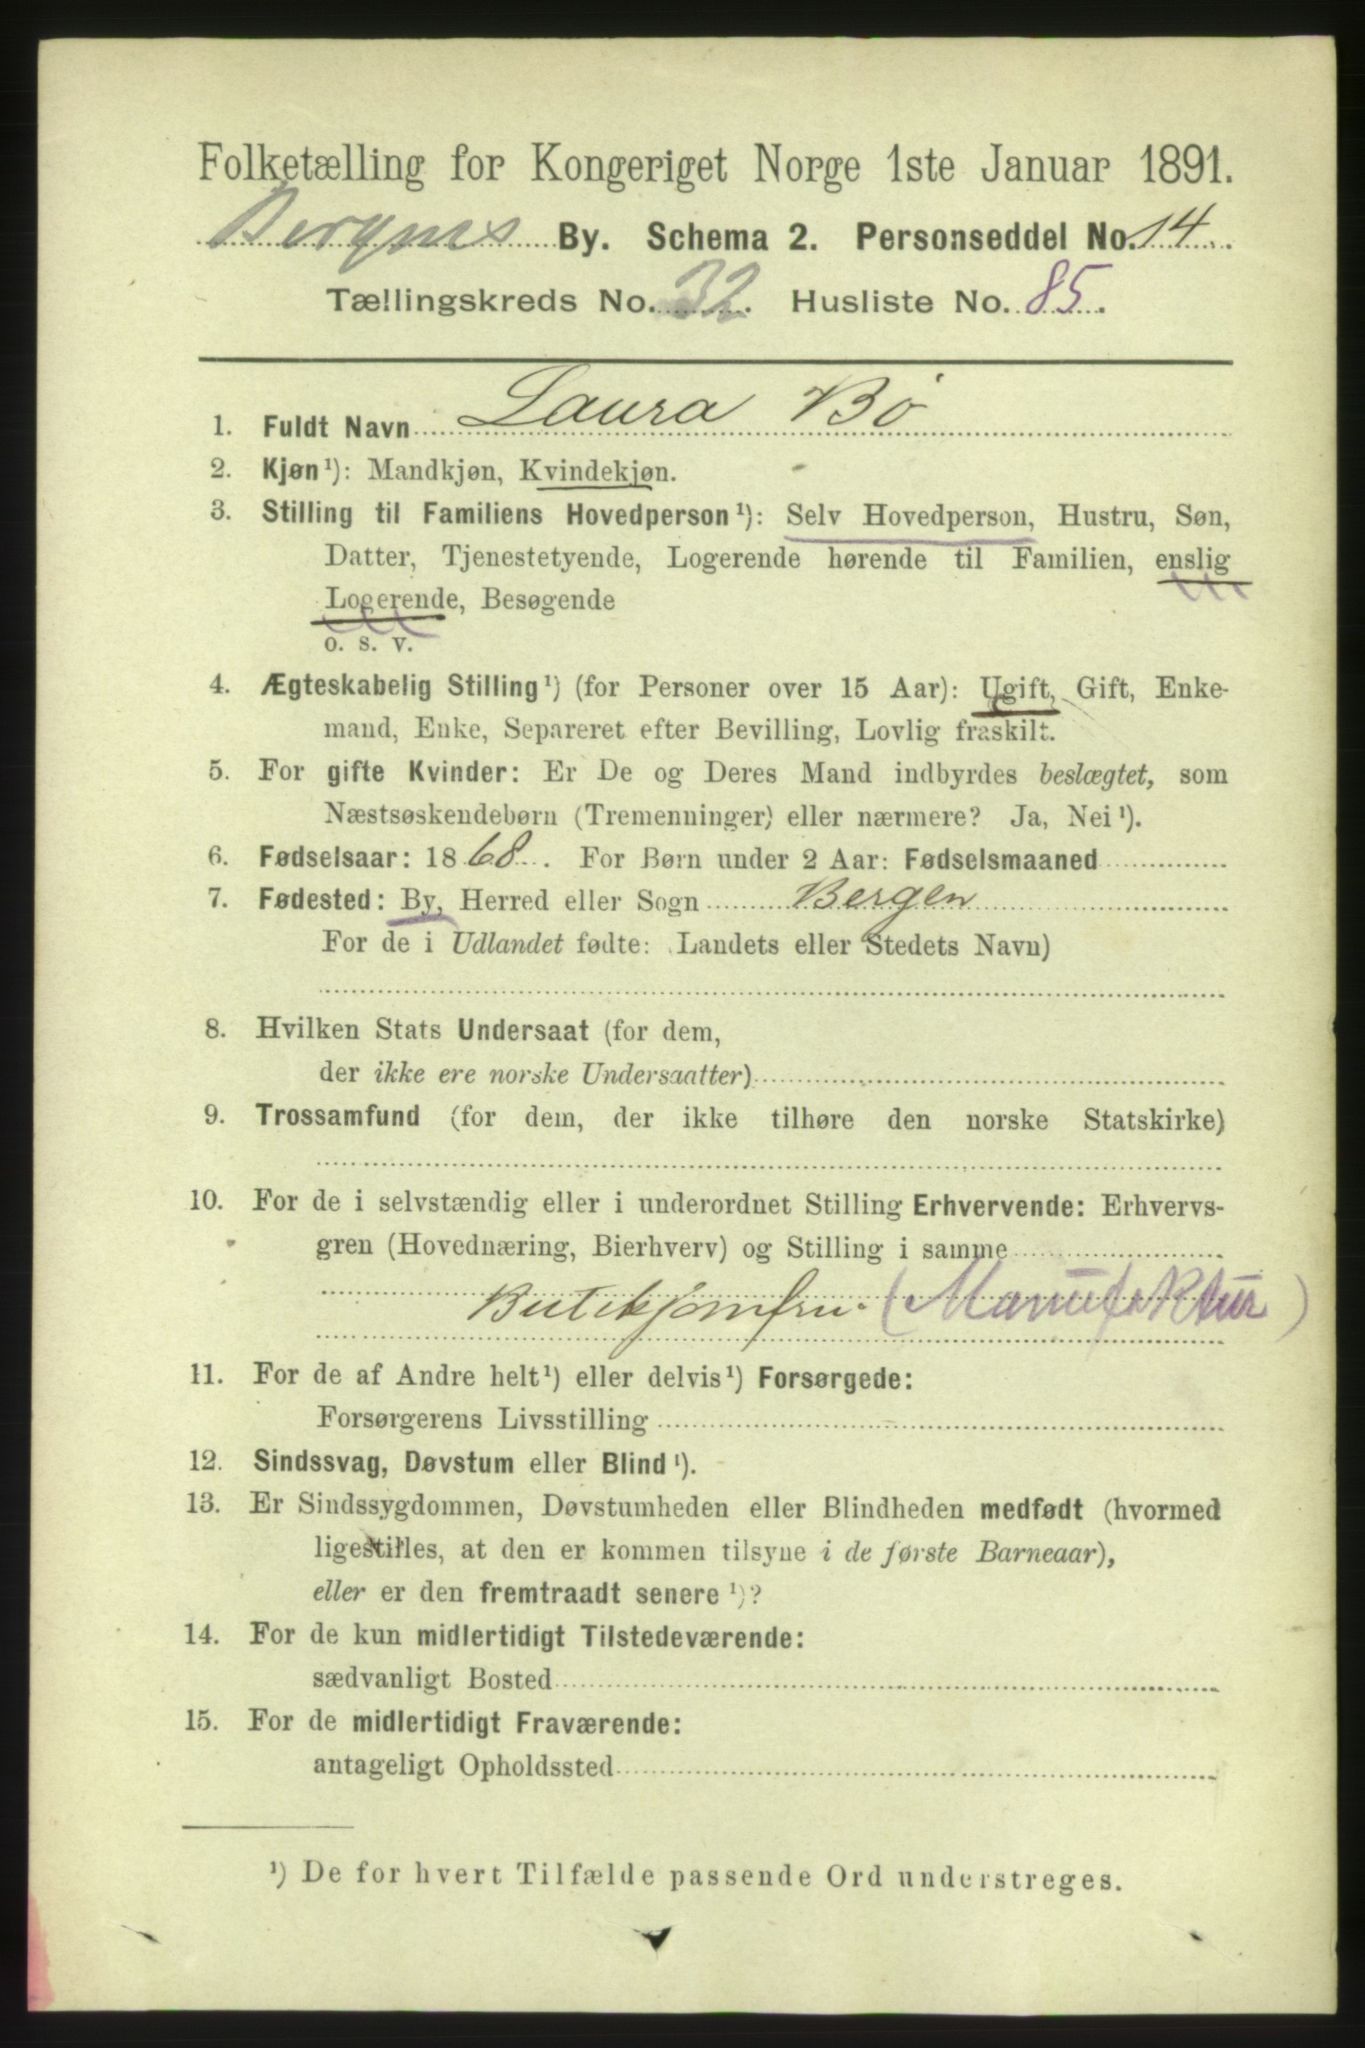 Folketælling for Kongeriget Norge 1ste Januar 1891.
Bergens By. Schema 2. Personseddel No. 14
Tællingskreds No. 32. Husliste No. 85.
1. Fuldt Navn Laura Bø
2. Kjøn¹): Mandkjøn, Kvindekjøn.
3. Stilling til Familiens Hovedperson¹): Selv Hovedperson, Hustru, Søn,
Datter, Tjenestetyende, Logerende hørende til Familien, enslig
Logerende, Besøgende
o. s. v.
4. Ægteskabelig Stilling¹) (for Personer over 15 Aar): Ugift, Gift, Enke-
mand, Enke, Separeret efter Bevilling, Lovlig fraskilt.
5. For gifte Kvinder: Er De og Deres Mand indbyrdes beslægtet, som
Næstsøskendebørn (Tremenninger) eller nærmere? Ja, Nei¹).
6. Fødselsaar: 1868. For Børn under 2 Aar: Fødselsmaaned
7. Fødested: By, Herred eller Sogn Bergen
For de i Udlandet fødte: Landets eller Stedets Navn)
8. Hvilken Stats Undersaat (for dem,
der ikke ere norske Undersaatter)
9. Trossamfund (for dem, der ikke tilhøre den norske Statskirke)
10. For de i selvstændig eller i underordnet Stilling Erhvervende: Erhvervs-
gren (Hovednæring, Bierhverv) og Stilling i samme
Butikjomfru. (Manufaktur)
11. For de af Andre helt¹) eller delvis¹) Forsørgede:
Forsørgerens Livsstilling
12. Sindssvag, Døvstum eller Blind¹).
13. Er Sindssygdommen, Døvstumheden eller Blindheden medfødt (hvormed
ligestilles, at den er kommen tilsyne i de første Barneaar),
eller er den fremtraadt senere¹)?
14. For de kun midlertidigt Tilstedeværende:
sædvanligt Bosted
15. For de midlertidigt Fraværende:
antageligt Opholdssted
¹) De for hvert Tilfælde passende Ord understreges.